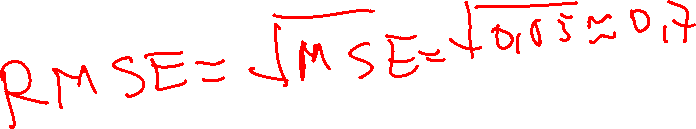 RMSE = √MSE = √0,05 ≈ 0,7